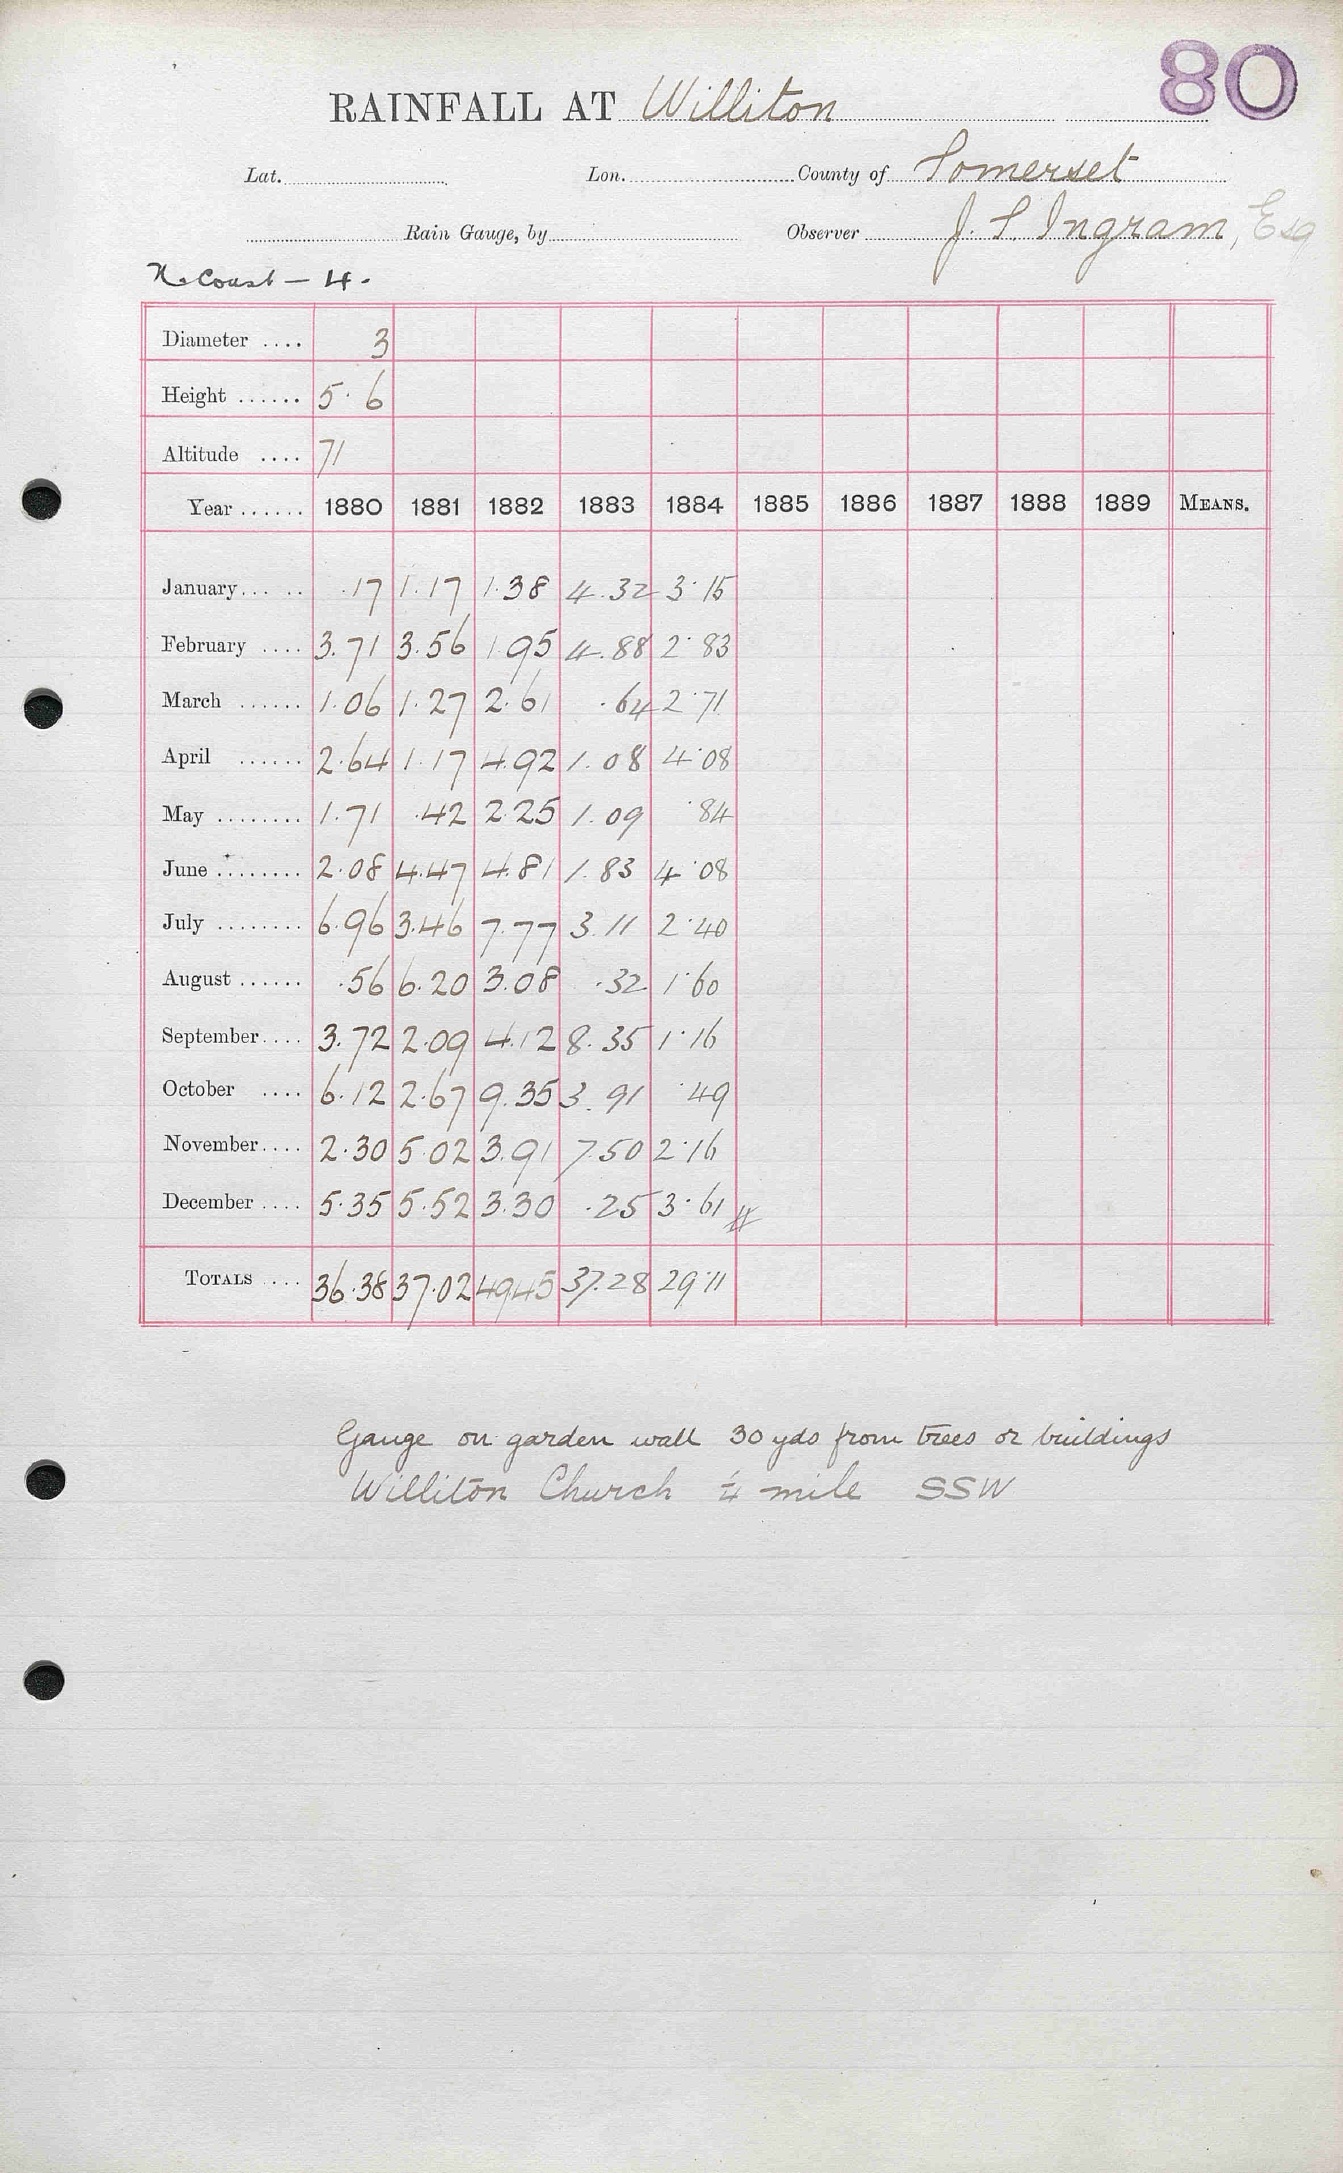 80
RAINFALL AT Williton
Lat. Lon. County of Somerset
Rain Gauge, by Observer J. S. Ingram, Esq
N. Coast – 4.
Diameter .... 3
Height ...... 5·6
Altitude .... 71
Year ...... 1880 1881 1882 1883 1884 1885 1886 1887 1888 1889 MEANS.
January... .. .17 1.17 1.38 4.32 3·15
February .... 3.71 3.56 1.95 4.88 2·83
March ...... 1.06 1.27 2.61 .64 2·71
April ...... 2.64 1.17 4.92 1.08 4·08
May ........ 1.71 .42 2.25 1.09 ·84
June ........ 2.08 4.47 4.81 1.83 4·08
July ........ 6.96 3.46 7.77 3.11 2·40
August ...... .56 6.20 3.08 .32 1·60
September.... 3.72 2.09 4.12 8.35 1·16
October .... 6.12 2.67 9.35 3.91 ·49
November.... 2.30 5.02 3.91 7.50 2·16
December .... 5.35 5.52 3.30 .25 3·61
TOTALS .... 36.38 37.02 49.45 37.28 29·11
Gauge on garden wall 30 yds from trees or buildings
Williton Church ¼ mile SSW